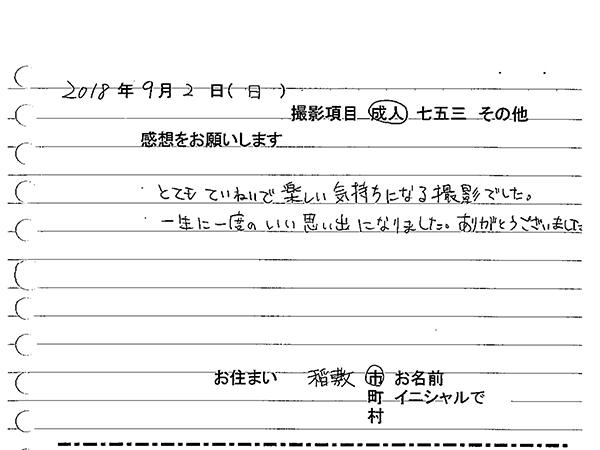 2018年9月2日(日)
撮影項目 成人 七五三 その他
感想をお願いします
とてもていねいで楽しい気持ちになる撮影でした。
一生に一度のいい思い出になりました。ありがとうございました
お住まい 稲敷 市 お名前
町 イニシャルで
村